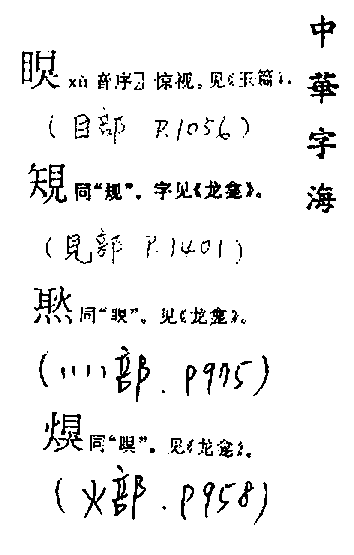 中華字海
瞁 xù [音序] 惊视。见《玉篇》。
(目部 P.1056)
䂓 同“规”。字见《龙龛》。
(見部 P.1401)
同“瞁”。见《龙龛》。
(灬部. P975)
同“瞁”。见《龙龛》。
(火部. P958)